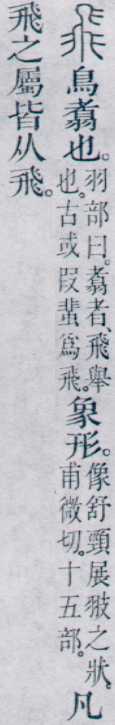 飛鳥翥也。羽部曰。翥者、飛舉也。古或叚蜚爲飛。象形。像舒頸展翄之狀。甫微切。十五部。凡
飛之屬皆从飛。